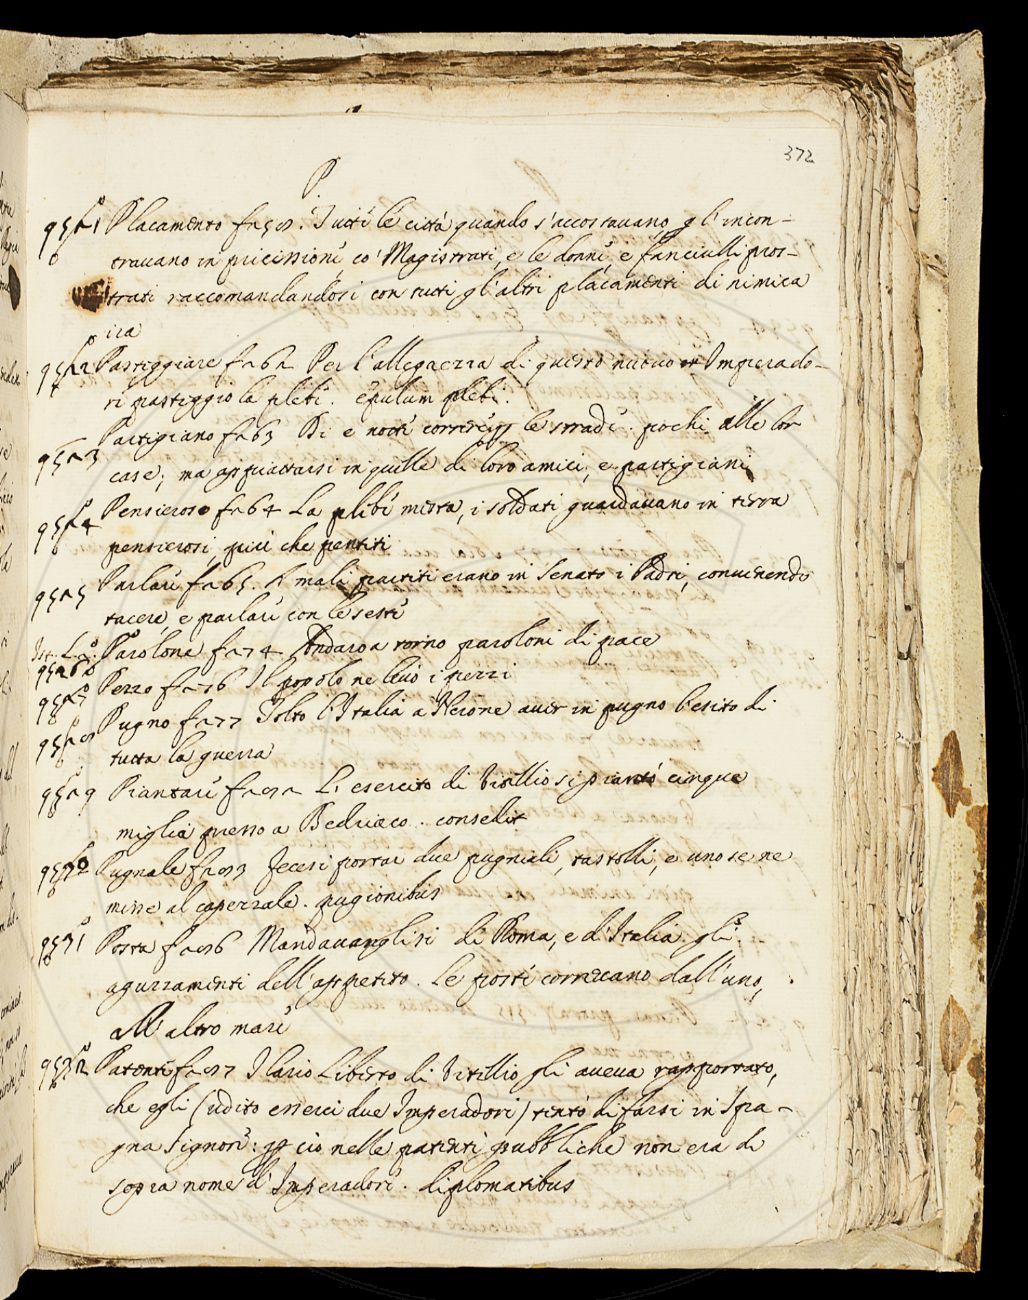 372
P
Placamento Tutte le città quando s'accostavano gl'incon-
travano in pricissione co' Magistrati, e le donne, e fanciulli pros-
trati raccomandandosi con tutti gl'altri placamenti di nimica
ira
Pasteggiare Per l'allegrezza di questo nuovo Imperado-
re pasteggiò la plebe. epulum plebi.
Partigiano Di e notte correvan le strade. pochi alle lor
case; ma appiattarsi in quelle di loro amici, e partigiani
Pensieroso La plebe mesta, i soldati guardavano in terra
pensierosi più che pentiti
Parlare A mali partiti erano in Senato i Padri, convenendo
tacere, e parlare con le seste
Parolone Andaro a torno paroloni di pace
Pezzo Il popolo ne levò i pezzi
Pugno Tolto l'Italia a Nerone aver in pugno l'esito di
tutta la guerra
Piantare L'esercito di Vitellio si piantò cinque
miglia presso a Bedriaco. consedit
Pugnale Fecesi portar due pugnali, tastolli, e uno se ne
misse al capezzale. pugionibus
Posta Mandavanglisi di Roma, e d'Italia gli
aguzzamenti dell'appetito. Le poste correvano dall'uno,
all'altro mare
Patente Ilario Liberto di Vitellio gli aveva rapportato,
che egli (udito esserci due Imperadori) tentò di farsi in Spa-
gna Signore: ciò nelle patenti pubbliche non era di
sopra nome d'Imperadore. diplomatibus